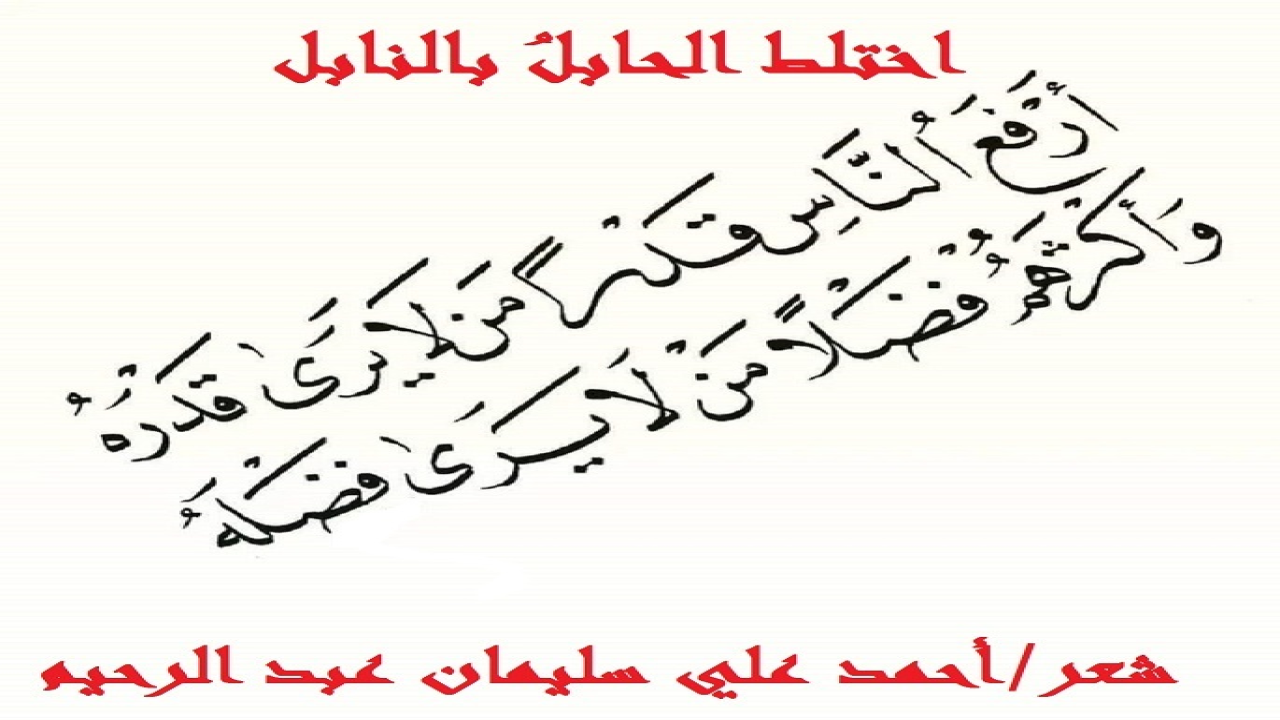 اختلط الحابلُ بالنابل
أَرْفَعُ النَّاسِ قَدْراً مَنْ لَا يَرَىٰ قَدْرَهُ
وَأَكْبَرُهُمْ فَضْلاً مَنْ لَا يَرَىٰ فَضْلَهُ
شعر/أحمد علي سليمان عبد الرحيم